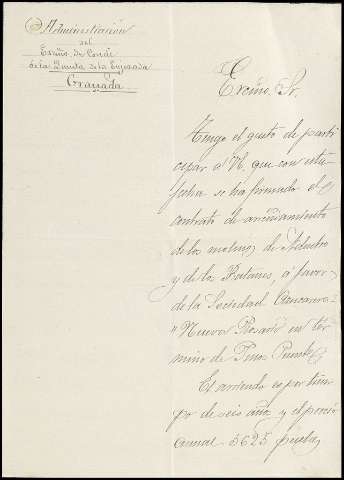 Administración
del
Excmo. Sr. Conde
de la Quinta de la Enjarada
Granada
Excmo. Sr.
Tengo el gusto de parti
cipar a V. que con esta
fecha se ha firmado el
contrato de arrendamiento
de los molinos de
y de los Batanes, a favor
de la Sociedad Azucarera
"Nuevo Rosario" en tér
mino de Pinos Puente,
El arriendo es por tiem
po de seis años y el precio
anual 5625 pesetas